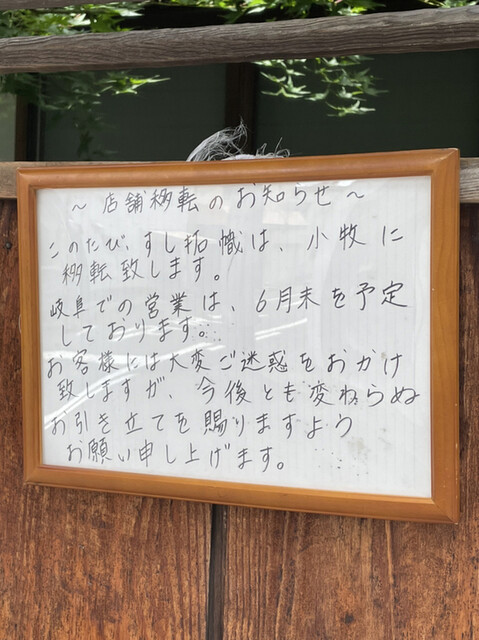 ～店舗移転のお知らせ～
このたび、すし拓幟は、小牧に
移転致します。
岐阜での営業は、6月末を予定
しております。
お客様には大変ご迷惑をおかけ
致しますが、今後とも変わらぬ
お引き立てを賜りますよう
お願い申し上げます。